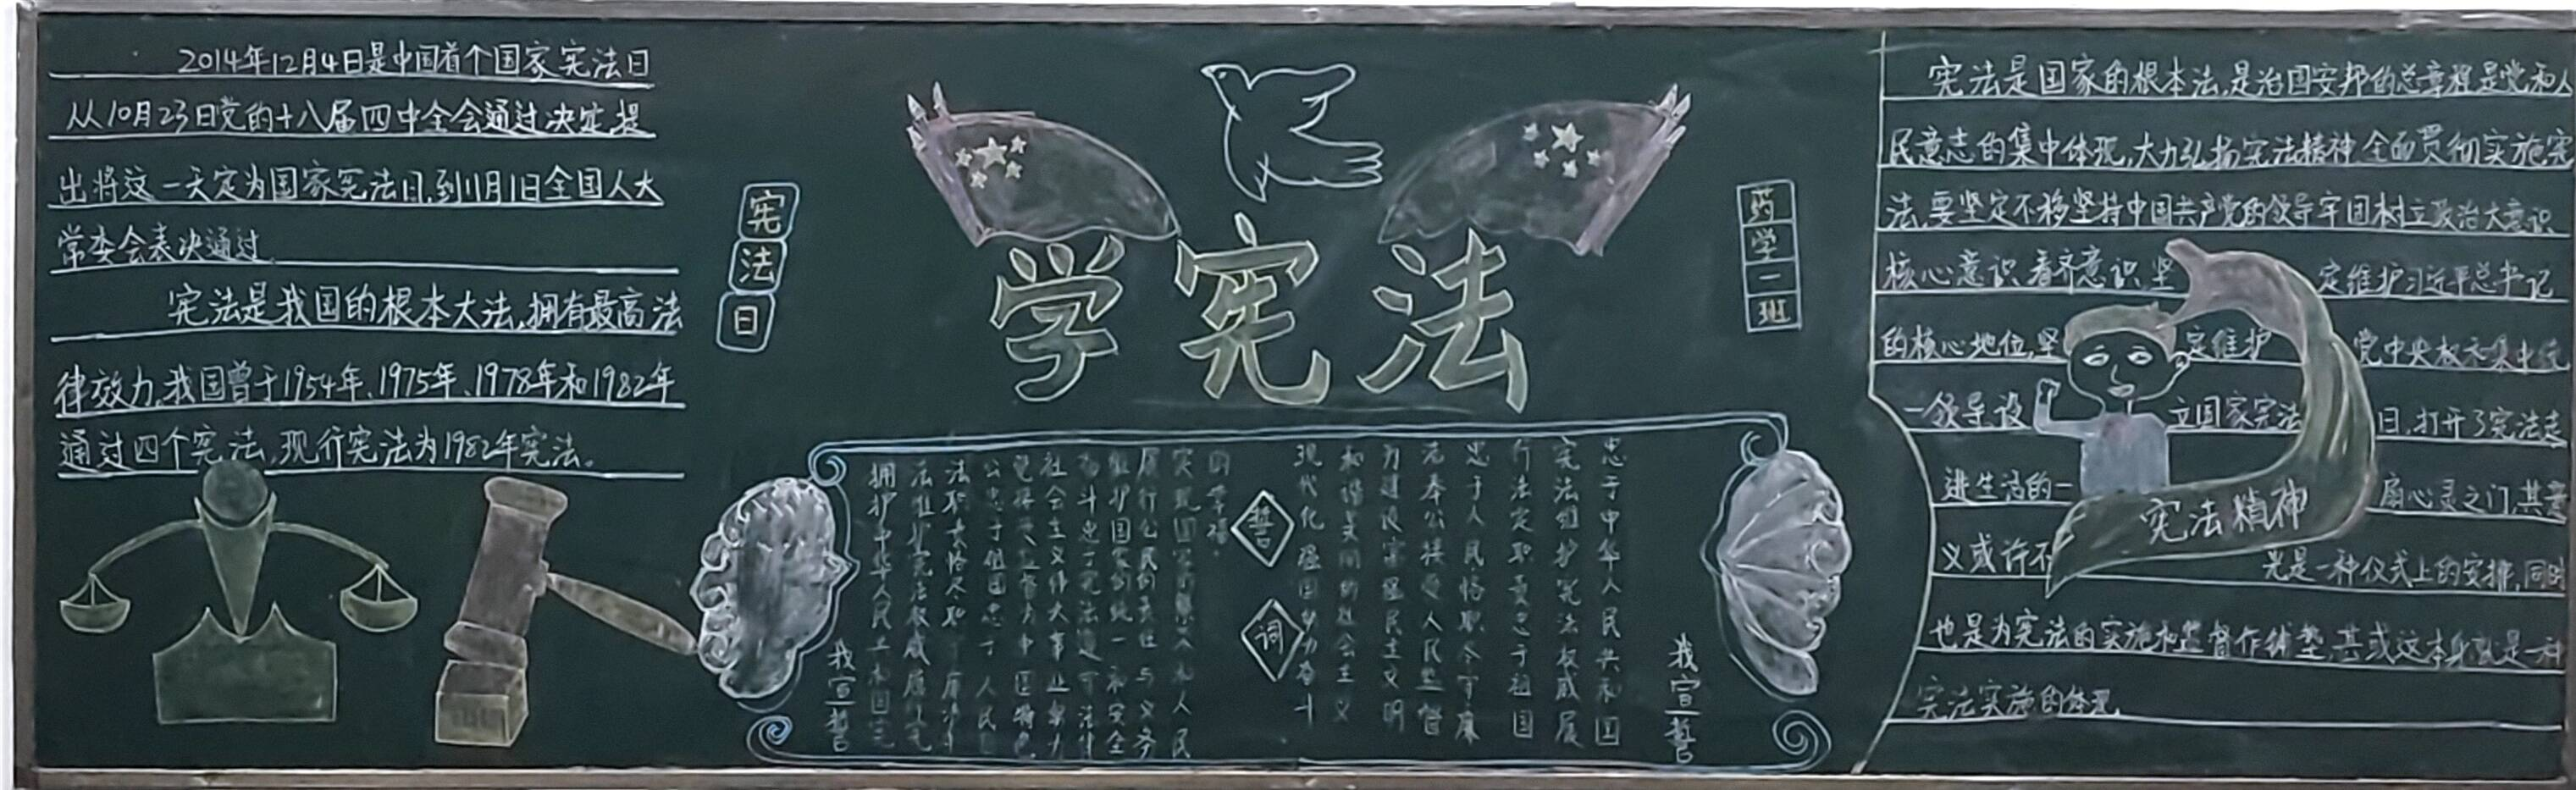 2014年12月4日是中国首个国家宪法日
从10月23日党的十八届四中全会通过决定,提
出将这一天定为国家宪法日,到11月1日全国人大
常委会表决通过。
宪法是我国的根本大法,拥有最高法
律效力,我国曾于1954年、1975年、1978年和1982年
通过四个宪法,现行宪法为1982年宪法。
宪法日
学宪法
药学一班
我宣誓
忠于中华人民共和国
宪法维护宪法权威履
行法定职责忠于祖国
忠于人民恪职尽守廉
洁奉公接受人民监督
为建设富强民主文明
和谐美丽的社会主义
现代化强国努力奋斗
誓词
我宣誓
拥护中华人民共和国宪
法维护宪法权威履行
法职责恪尽职
公忠于祖国忠于人民
社会主义伟大事业努力
奋斗忠于宪法
维护国家的统一和安全
履行公民的责任与义务
宪法是国家的根本法,是治国安邦的总章程是党和人
民意志的集中体现,大力弘扬宪法精神全面贯彻实施宪
法,要坚定不移坚持中国共产党的领导牢固树立政治大意识
核心意识看齐意识坚定维护习近平总书记
的核心地位,坚定维护党中央权威集中统
一领导设立国家宪法日,打开了宪法走
进生活的一扇心灵之门,其意
义或许不光是一种仪式上的安排,同时
也是为宪法的实施和监督作铺垫,甚或这本身就是一种
宪法实施的体现
宪法精神